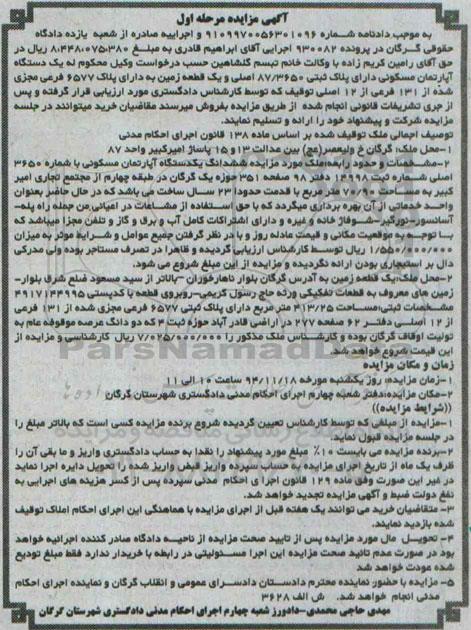 آگهی مزایده مرحله اول
به موجب دادنامه شماره ۹۱۰۹۹۷۰۰۵۶۳۰۱۰۹۶ و اجراییه صادره از شعبه یازده دادگاه
حقوقی گرگان در پرونده ۹۳۰۰۸۲ اجرایی آقای ابراهیم قادری به مبلغ ۸،۴۴۸،۰۷۵،۳۸۰ ریال در
حق آقای رامین کریم زاده با وکالت خانم تبسم گلشاهین حسب درخواست وکیل محکوم له یک دستگاه
آپارتمان مسکونی دارای پلاک ثبتی ۸۷/۳۶۵۰ اصلی و یک قطعه زمین به دارای پلاک ۶۵۷۷ فرعی مجزی
شده از ۱۳۱ فرعی از ۱۲ اصلی توقیف که توسط کارشناس دادگستری مورد ارزیابی قرار گرفته و پس
از جری تشریفات قانونی انجام شده از طریق مزایده بفروش میرسند متقاضیان خرید میتوانند در جلسه
مزایده شرکت و پیشنهاد خود را ارائه و تسلیم نمایند.
توصیف اجمالی ملک توقیف شده بر اساس ماده ۱۳۸ قانون اجرای احکام مدنی
۱-محل ملک: گرگان خ ولیعصر(عج) بین عدالت ۱۳ و ۱۵ پاساژ امیرکبیر واحد ۸۷
۲-مشخصات و حدود اربعه ملک مورد مزایده ششدانگ یکدستگاه آپارتمان مسکونی با شماره ۳۶۵۰
اصلی شماره ثبت ۱۴۹۹۸ دفتر ۹۸ صفحه ۳۵۱ حوزه یک گرگان در طبقه چهارم از مجتمع تجاری امیر
کبیر به مساحت متر مربع با قدمت حدودا ۲۳ سال ساخت می باشد که در حال حاضر بعنوان
واحد خدماتی از آن بهره برداری میگردد که با حق استفاده از مشاعات در اعیانی من جمله راه پله-
آسانسور-نورگیر-شوفاژ خانه و غیره و دارای اشتراکات کامل آب و برق و گاز و تلفن مجزا میباشد که
با توجه به موقعیت مکانی و قیمت عادله روز و با در نظر گرفتن جمیع عوامل و شرایط موثر به میزان
ریال توسط کارشناس ارزیابی گردیده و ظاهرا در تصرف مستاجر بوده ولی مدرکی
دال بر استیجاری بودن ارائه نگردیده و مزایده از این مبلغ شروع می شود.
۲-محل ملک: یک قطعه زمین به آدرس گرگان بلوار ناهارخوران-بالاتر از سید مسعود ضلع شرق بلوار-
زمین های معروف به قطعات تفکیکی ورثه حاج رسول کریمی-روبروی قطعه با کدپستی ۴۹۱۷۱۴۴۹۹۵
مشخصات ثبتی،مساحت ۳۱۳/۲۵ متر مربع دارای پلاک ثبتی ۶۵۷۷ فرعی مجزی شده از ۱۳۱ فرعی
از ۱۲ اصلی دفتر ۶۲ صفحه ۲۷۷ در اراضی قادر آباد حوزه ثبت ۳ که دو دانگ عرصه موقوفه عام به
تولیت اوقاف گرگان بوده و کارشناس ملک مذکور را ۷/۰۲۵/۰۰۰/۰۰۰ ریال کارشناسی و مزایده از
این قیمت شروع خواهد شد.
زمان و مکان مزایده
۱-زمان مزایده: روز یکشنبه مورخه ۹۴/۱۱/۱۸ ساعت ۱۰ الی ۱۱
۲-مکان مزایده:دفتر شعبه چهارم اجرای احکام مدنی دادگستری شهرستان گرگان
((شرایط مزایده))
۱-مزایده از مبلغی که توسط کارشناس تعیین گردیده شروع برنده مزایده کسی است که بالاتر مبلغ را
در جلسه مزایده قبول نماید.
۲-برنده مزایده می بایست ۱۰٪ مبلغ مورد پیشنهاد را نقدا به حساب دادگستری واریز و ما بقی آن را
ظرف یک ماه از تاریخ اجرای مزایده به حساب سپرده واریز قبض واریز شده را تحویل دایره اجرا نماید
در غیر این صورت وفق ماده ۱۲۹ قانون اجرای احکام مدنی سپرده پس از کسر هزینه های اجرایی به
نفع دولت ضبط و آگهی مزایده تجدید خواهد شد.
۳-متقاضیان خرید می توانند یک هفته قبل از اجرای مزایده با هماهنگی این اجرای احکام املاک توقیف
شده بازدید نمایند.
۴-تحویل مال مورد مزایده پس از تایید صحت مزایده از ناحیه دادگاه صادر کننده اجرائیه خواهد
بود در صورت عدم تائید صحت مزایده این اجرا مسئولیتی در رابطه با خریدار ندارد فقط مبلغ تودیع
شده عودت خواهد شد
۵-مزایده با حضور نماینده محترم دادستان دادسرای عمومی و انقلاب گرگان و نماینده اجرای احکام
مدنی انجام خواهد شد. ش الف ۳۶۲۸
مهدی حاجی محمدی-دادورز شعبه چهارم اجرای احکام مدنی دادگستری شهرستان گرگان
ParsNamadData